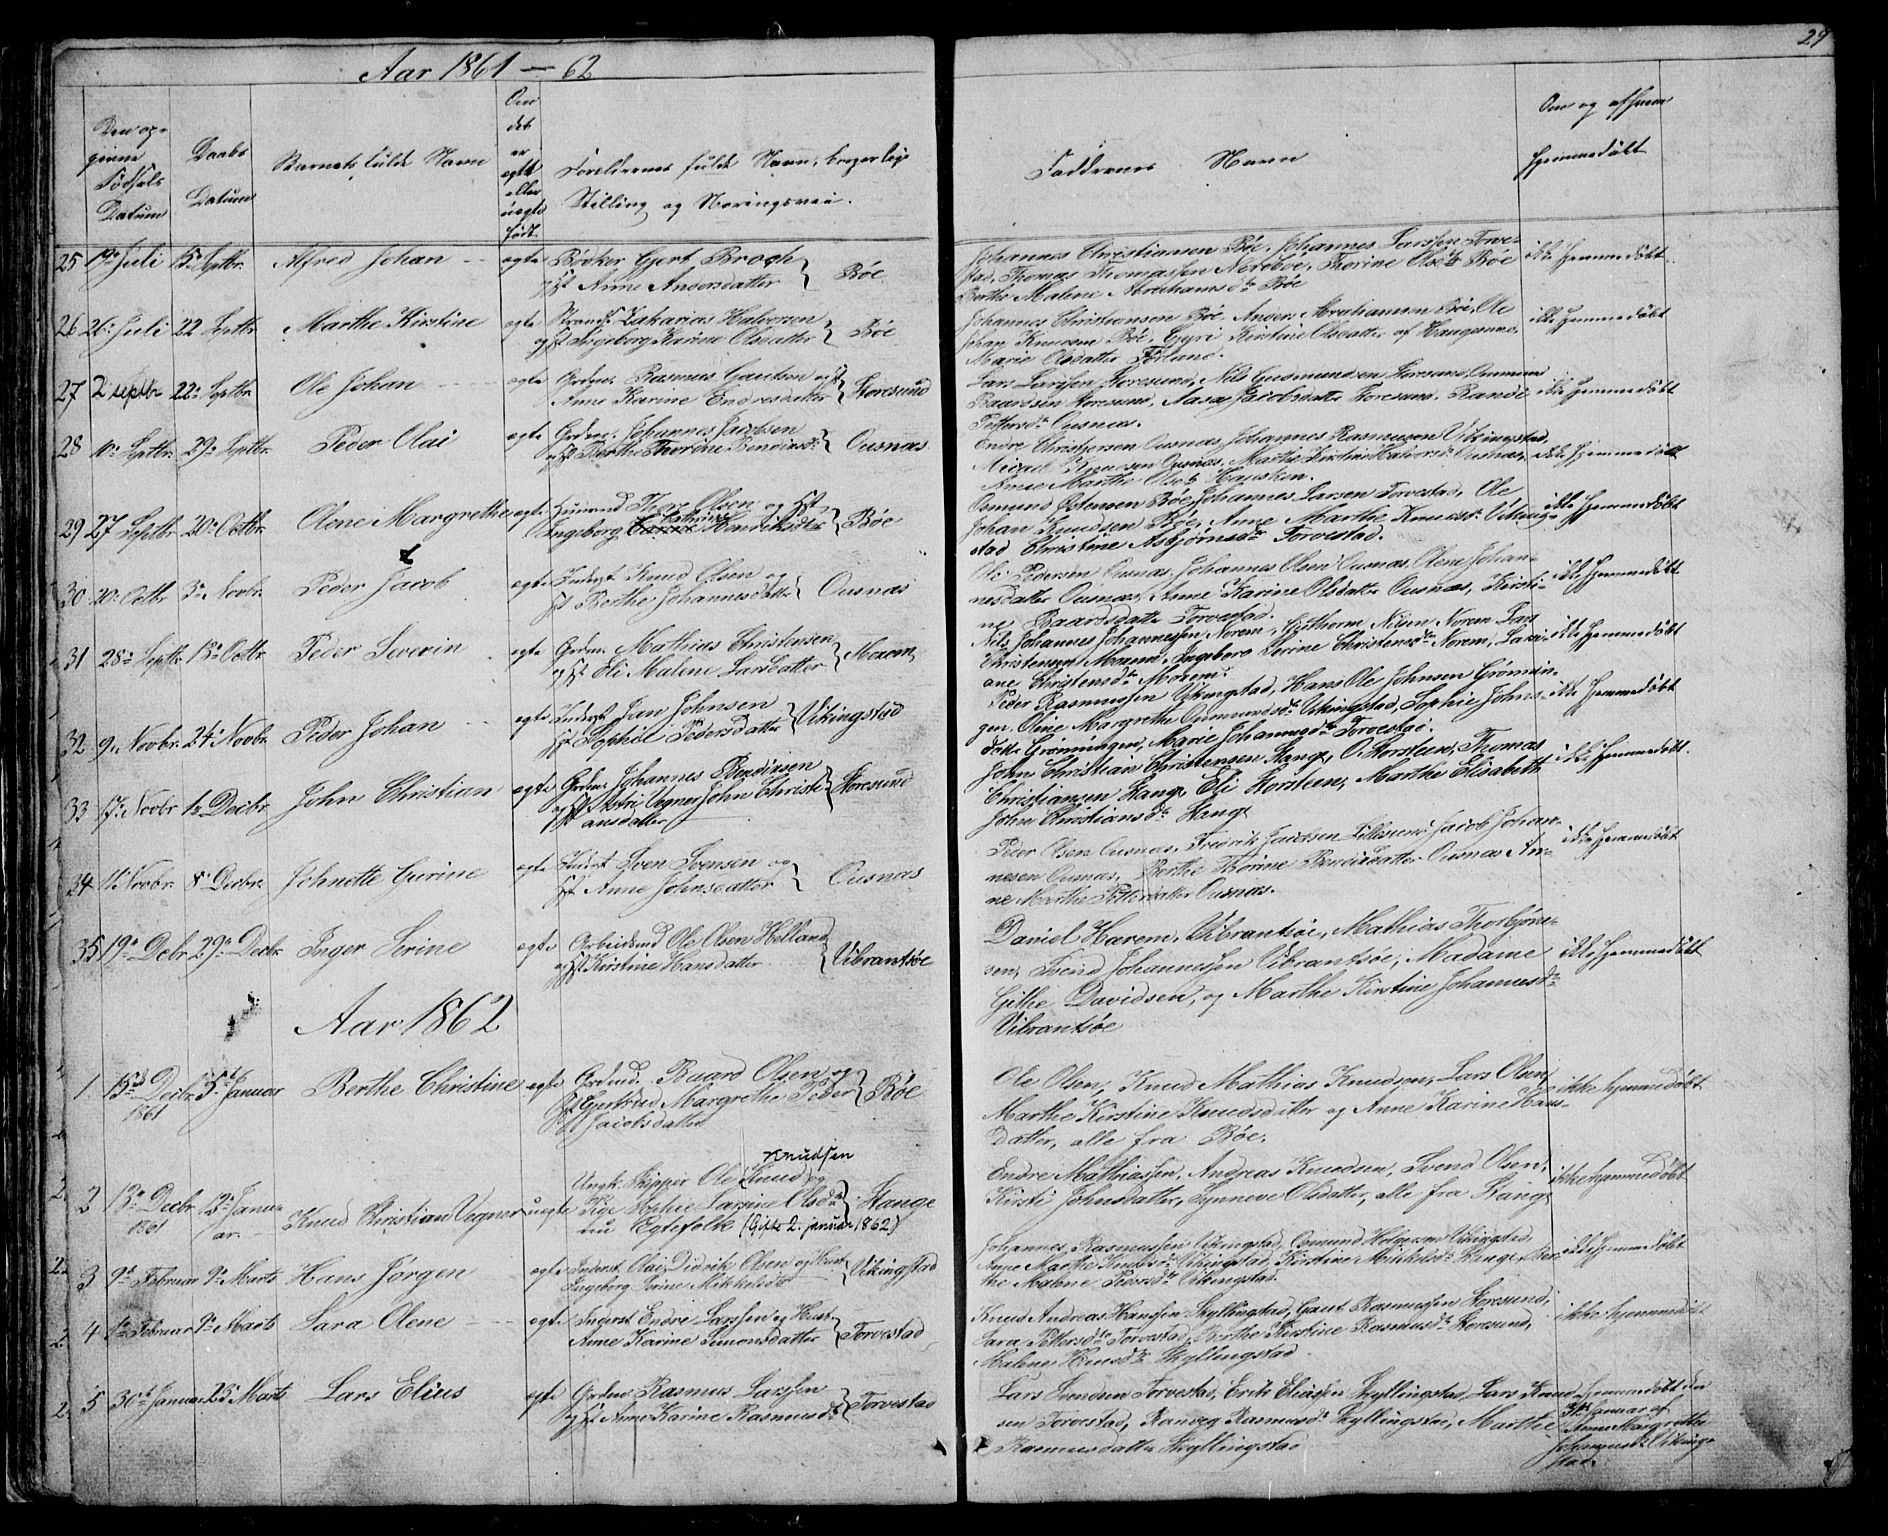 29
Aar 1861 — 62
Den op-
givne
Fødsels
Datum
Daabs
Datum
Barnets fulde Navn
Om
det
er
ægte
eller
uægte
født.
Forældrenes fulde Navn, borgerlige
Stilling og Næringsvei.
Faddrenes Navn
Om og af hvem
hjemmedøbt
25 19de Juli 15de Septbr. Alfred Johan ægte Bødker Gjert Brogh
og Hst Anne Andersdatter } Bøe
Johannes Christiansen Bøe, Johannes Larssen Torve-
stad, Thomas Thomassen Nerebøe, Thorine Olsdtr Bøe
Berthe Malene Abrahamsdtr Bøe
ikke hjemmedøbt.
26 26: Juli 22 Septbr. Marthe Kirstine ægte Strands. Zakarias Halvorsen
og Hst Ingeborg Karine Olsdatter } Bøe
Johannes Christiansen Bøe, Anders Abrahamsen Bøe, Ole
Johan Knudsen Bøe, Gyri Kirstine Olsdatter af Haugesund,
Marie Olsdatter Førlund.
ikke hjemmedøbt
27 2 septbr 22de Septbr Ole Johan ægte Grdm. Rasmus Gautsen og Hst
Anne Karine Endresdatter } Storesund
Lars Larssen Storesund, Nils Gudmundsen Storesund, Ommund
Baardsen Storesund, Aasa Jacobsdatter Storesund, Randi
Pettersdtr Ousnæs.
ikke hjemmedøbt
28 10de Septbr. 29de Septbr. Peder Olai ægte Grdm. Johannes Jacobsen
og Hst Berthe Thorine Bendixsdtr } Ousnæs
Endre Christensen Ousnæs, Johannes Rasmussen Vikingstad,
Knudsen Ousnæs, Marthe Kirstine Halvorsdtr Ousnæs,
Anne Marthe Olsdtr Hausken.
ikke hjemmedøbt
29 27 Septbr 20de Octbr. Olene Margrethe ægte Huusmd Thor Olsen og Hst
Kathrine
Ingeborg Karine Henriksdtr } Bøe
Osmund Østensen Bøe, Johannes Larsen Torvestad, Ole
Johan Knudsen Bøe, Anne Marthe Knudsdtr Viking-
stad, Christine Asbjørnsdtr Torvestad.
ikke hjemmedøbt
30 20de Octbr 3de Novbr. Peder Jacob ægte Inderst Knud Olsen og
Hst Berthe Johannesdatter } Ousnæs
Ole Pedersen Ousnæs, Johannes Olsen Ousnæs, Olene Johan-
nesdatter Ousnæs, Anne Karine Olsdatter Ousnæs, Kirsti-
ne Baardsdatter Torvestad.
ikke hjemmedøbt
31 28de Septbr 13de Octbr. Peder Severin ægte Grdm. Mathias Christensen
og Hst Eli Malene Larsdatter } Norem
Nils Johannes Johannessen Norem, Guthorm Nilsen Norem, Lars
Christensen Norem, Ingeborg Serine Christensdtr Norem, Lari-
ane Christensdtr Norem.
ikke hjemmedøbt
32 9de Novbr. 24de Novbr. Peder Johan ægte Inderst Jan Johnsen
Hst Sophie Pedersdatter } Vikingstad
Peder Rasmussen Vikingstad, Hans Ole Johnsen Grønnin-
gen, Oline Margrethe Ommundsdtr Vikingstad, Sophie Johns-
datter Grønningen, Marie Johannesdtr Torvestad.
ikke hjemmedøbt
33 17de Novbr 1ste Decbr. John Christian ægte Grdm. Johannes Bendixsen
og Hst Astri Vegner John Christi-
ansdatter } Storesund
John Christian Christensen Stange, O. Korsteen, Thomas
Christiansen Stange, Eli Korsteen, Marthe Elisabeth
John Christiansdtr Stange
ikke hjemmedøbt.
34 11te Novbr. 8de Decbr. Johnette Gurine ægte Inderst Sven Svensen og
Hst Anne Johnsdatter } Ousnæs
Peder Olsen Ousnæs, Fredrik Jacobsen Lillesund, Jacob Johan-
nesen Ousnæs, Berthe Thorine Bendixsdatter Ousnæs, An-
ne Marthe Pettersdatter Ousnæs.
ikke hjemmedøbt
35 19de Decbr 29de Decbr. Inger Serine ægte Arbeidsmd Ole Olsen Helland
og Hst Kirstine Hansdatter } Vibrantsøe
Daniel Harem, Vibrantsøe, Mathias Thorbjørn-
sen, Svend Johannessen Vibrantsøe, Madame
Githe Davidsen, og Marthe Kirstine Johannesdtr
Vibrantsøe
ikke hjemmedøbt
Aar 1862
1 15de Decbr 1861 5te Januar Berthe Christine ægte Grdmd. Baard Olsen og
Hst Gjertrud Margrethe Peder
Jacobsdatter } Bøe
Ole Olsen, Knud Mathias Knudsen, Lars Olsen,
Marthe Kirstine Knudsdatter og Anne Karine Hans-
datter, alle fra Bøe.
ikke hjemmedøbt
2 13de Decbr 1861 12te Janu-
ar. Knud Christian Vegner uægte Ungk. Skipper Ole Knudsen og
Pige Sophie Larsine Olsdtr
nu Egtefolk (Gifte 2. januar 1862) } Stange
Endre Mathiassen, Andreas Knudsen, Svend Olsen,
Kirsti Johnsdatter, Synneve Olsdatter, alle fra Stange
ikke hjemmedøbt
3 9de Februar 9de Marts Hans Jørgen ægte Inderst Olai Didrik Olsen og Hustru
Ingeborg Serine Mikkelsdtr } Vikingstad
Johannes Rasmussen Vikingstad, Osmund Holgersen Vikingstad,
Anne Marthe Knudsdtr Vikingstad, Kirstine Mikkelsdtr Stange, Ber-
the Malene Pedersdtr Vikingstad.
ikke hjemmedøbt
4 1ste Februar 9de Marts Lara Olene ægte Inderst Endre Larssen og Hust.
Anne Karine Simonsdatter } Torvestad
Knud Andreas Hansen Skyllingstad, Gaut Rasmussen Storesund,
Lara Pettersdtr Torvestad, Berthe Kirstine Rasmusdtr Storesund,
Malene Hansdtr Skyllingstad
ikke hjemmedøbt
5 30te Januar 23de Marts Lars Elius ægte Grdm. Rasmus Larssen
og Hst Anne Karine Rasmusdtr } Torvestad
Lars Svendsen Torvestad, Erik Eliassen Skyllingstad, Lars Knud-
sen Torvestad, Ranveg Rasmusdtr Skyllingstad, Marthe
Rasmusdatter Skyllingstad
Hjemmedøbt den
31te Januar af
Anne Margrethe
Johannesdtr Viking-
stad.